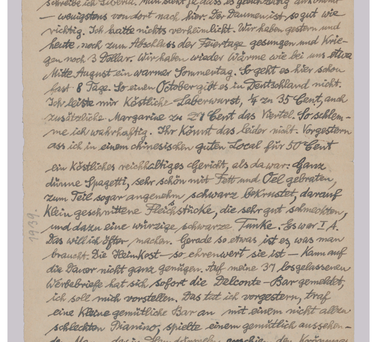 schreibe ich
– wenigstens von dort nach hier. Der Daumen ist so gut wie
richtig. Ich hatte nichts verheimlicht. Wir haben gestern und
heute noch zum Abschluss der Feiertage gesungen und krie-
gen noch 3 Dollar. Wir haben wieder Wärme wie bei uns etwa
Mitte August ein warmer Sommertag. So geht es hier schon
fast 8 Tage. So einen October gibt es in Deutschland nicht.
Ich leiste mir köstliche Leberwurst, ¼ zu 35 Cent, auch
zusätzliche Margarine zu 28 Cent das Viertel. So schlem-
me ich wahrhaftig. Ihr könnt das leider nicht. Vorgestern
ass ich in einem chinesischen guten Local für 50 Cent
ein köstliches reichhaltiges Gericht, als da war: Ganz
dünne Spagetti, sehr schön mit Fett und Oel gebraten,
zum Teil sogar angenehm schwarz bekrustet, darauf
klein geschnittene Fleischstücke, die sehr gut schmeckten,
und dazu eine würzige, schwarze Tunke. Es war I A.
Das will ich öfter machen. Gerade so etwas ist es was man
braucht. Die Heimkost – so ehrenwert sie ist – kann auf
die Dauer nicht ganz genügen. Auf meine 37 losgelassenen
Werbebriefe hat sich sofort die Delconte-Bar gemeldet,
ich soll mich vorstellen. Das tat ich vorgestern, traf
eine kleine gemütliche Bar an mit einem nicht allzu
schlechten Pianino, spielte einem gemütlich aussehen-
1939.